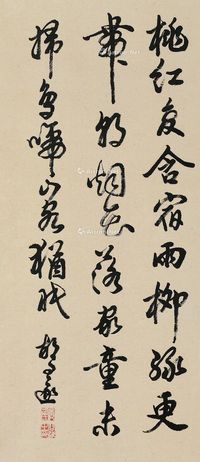 桃红复含宿雨柳绿更
带朝烟花落家童未
扫鸟啼山客犹眠